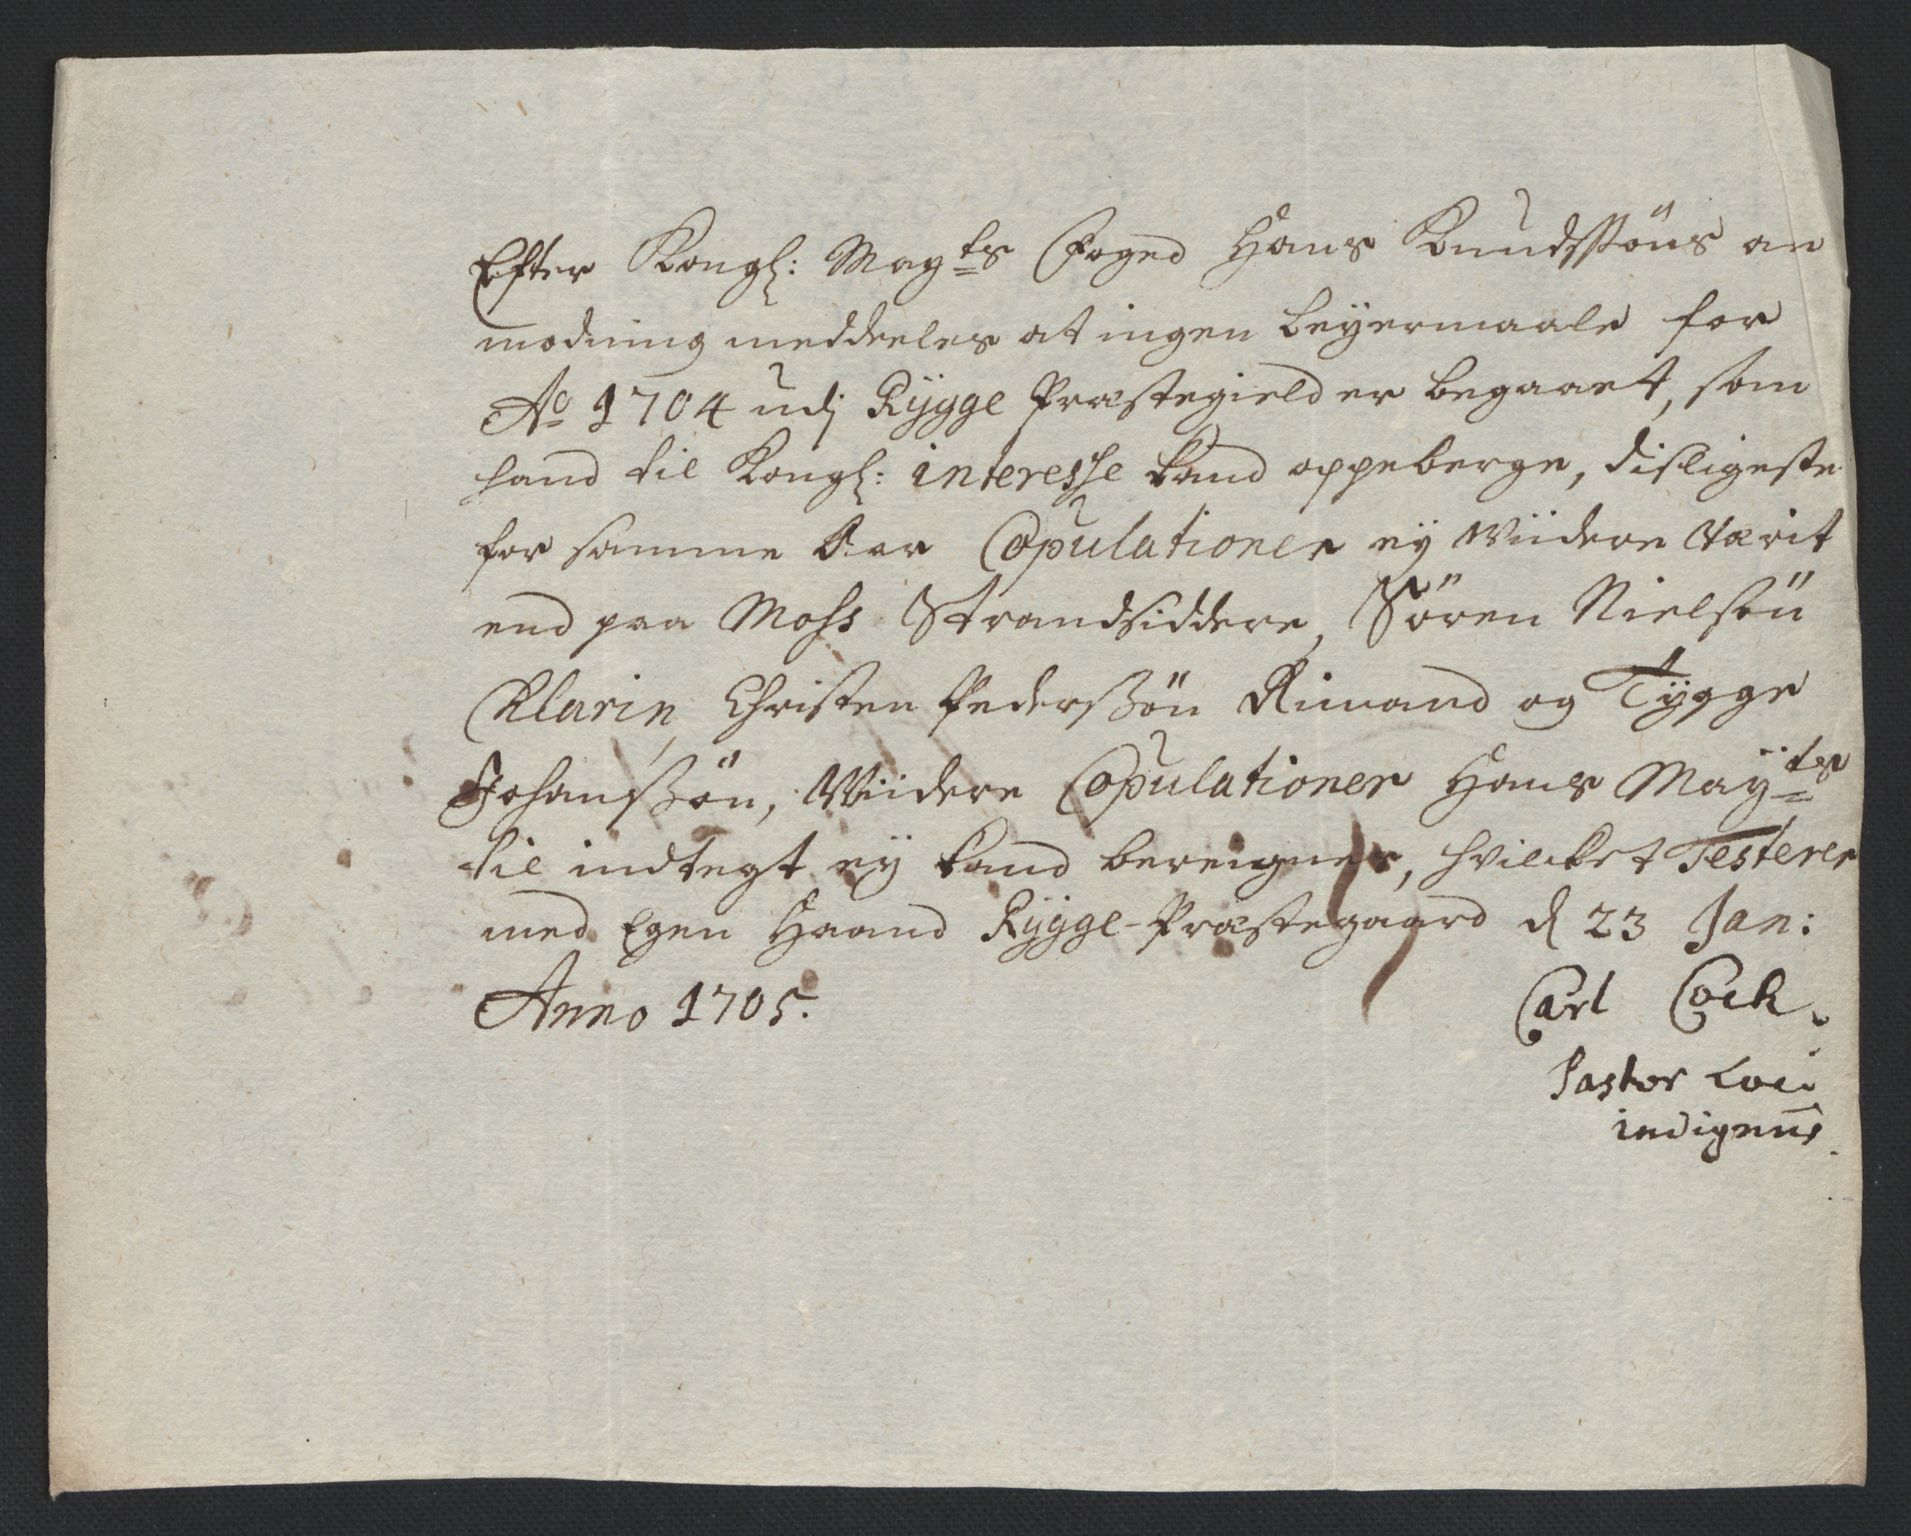 Efter Kongl: Mayts Foged Hans Knudssöns an
modning meddeeles at ingen Leyermaale for
Ao 1704 udj Rygge Præstegield er begaaet, som
hand til Kongl: interesse kand oppeberge, disligeste
for samme Aar Copulationer ey Wiidere Værit
end paa Moss Strandsiddere, Sören Nielsön
Klarin, Christen Pederssön Rimand og Tygge
Johanssön, Wiidere Copulationer Hans Mayts
til indtegt ey kand bereignes, hvilcket Testerer
med Egen Haand Rygge-Præstegaard d 23 Jan:
Anno 1705.
Carl Cock.
Pastor Loci
indignus